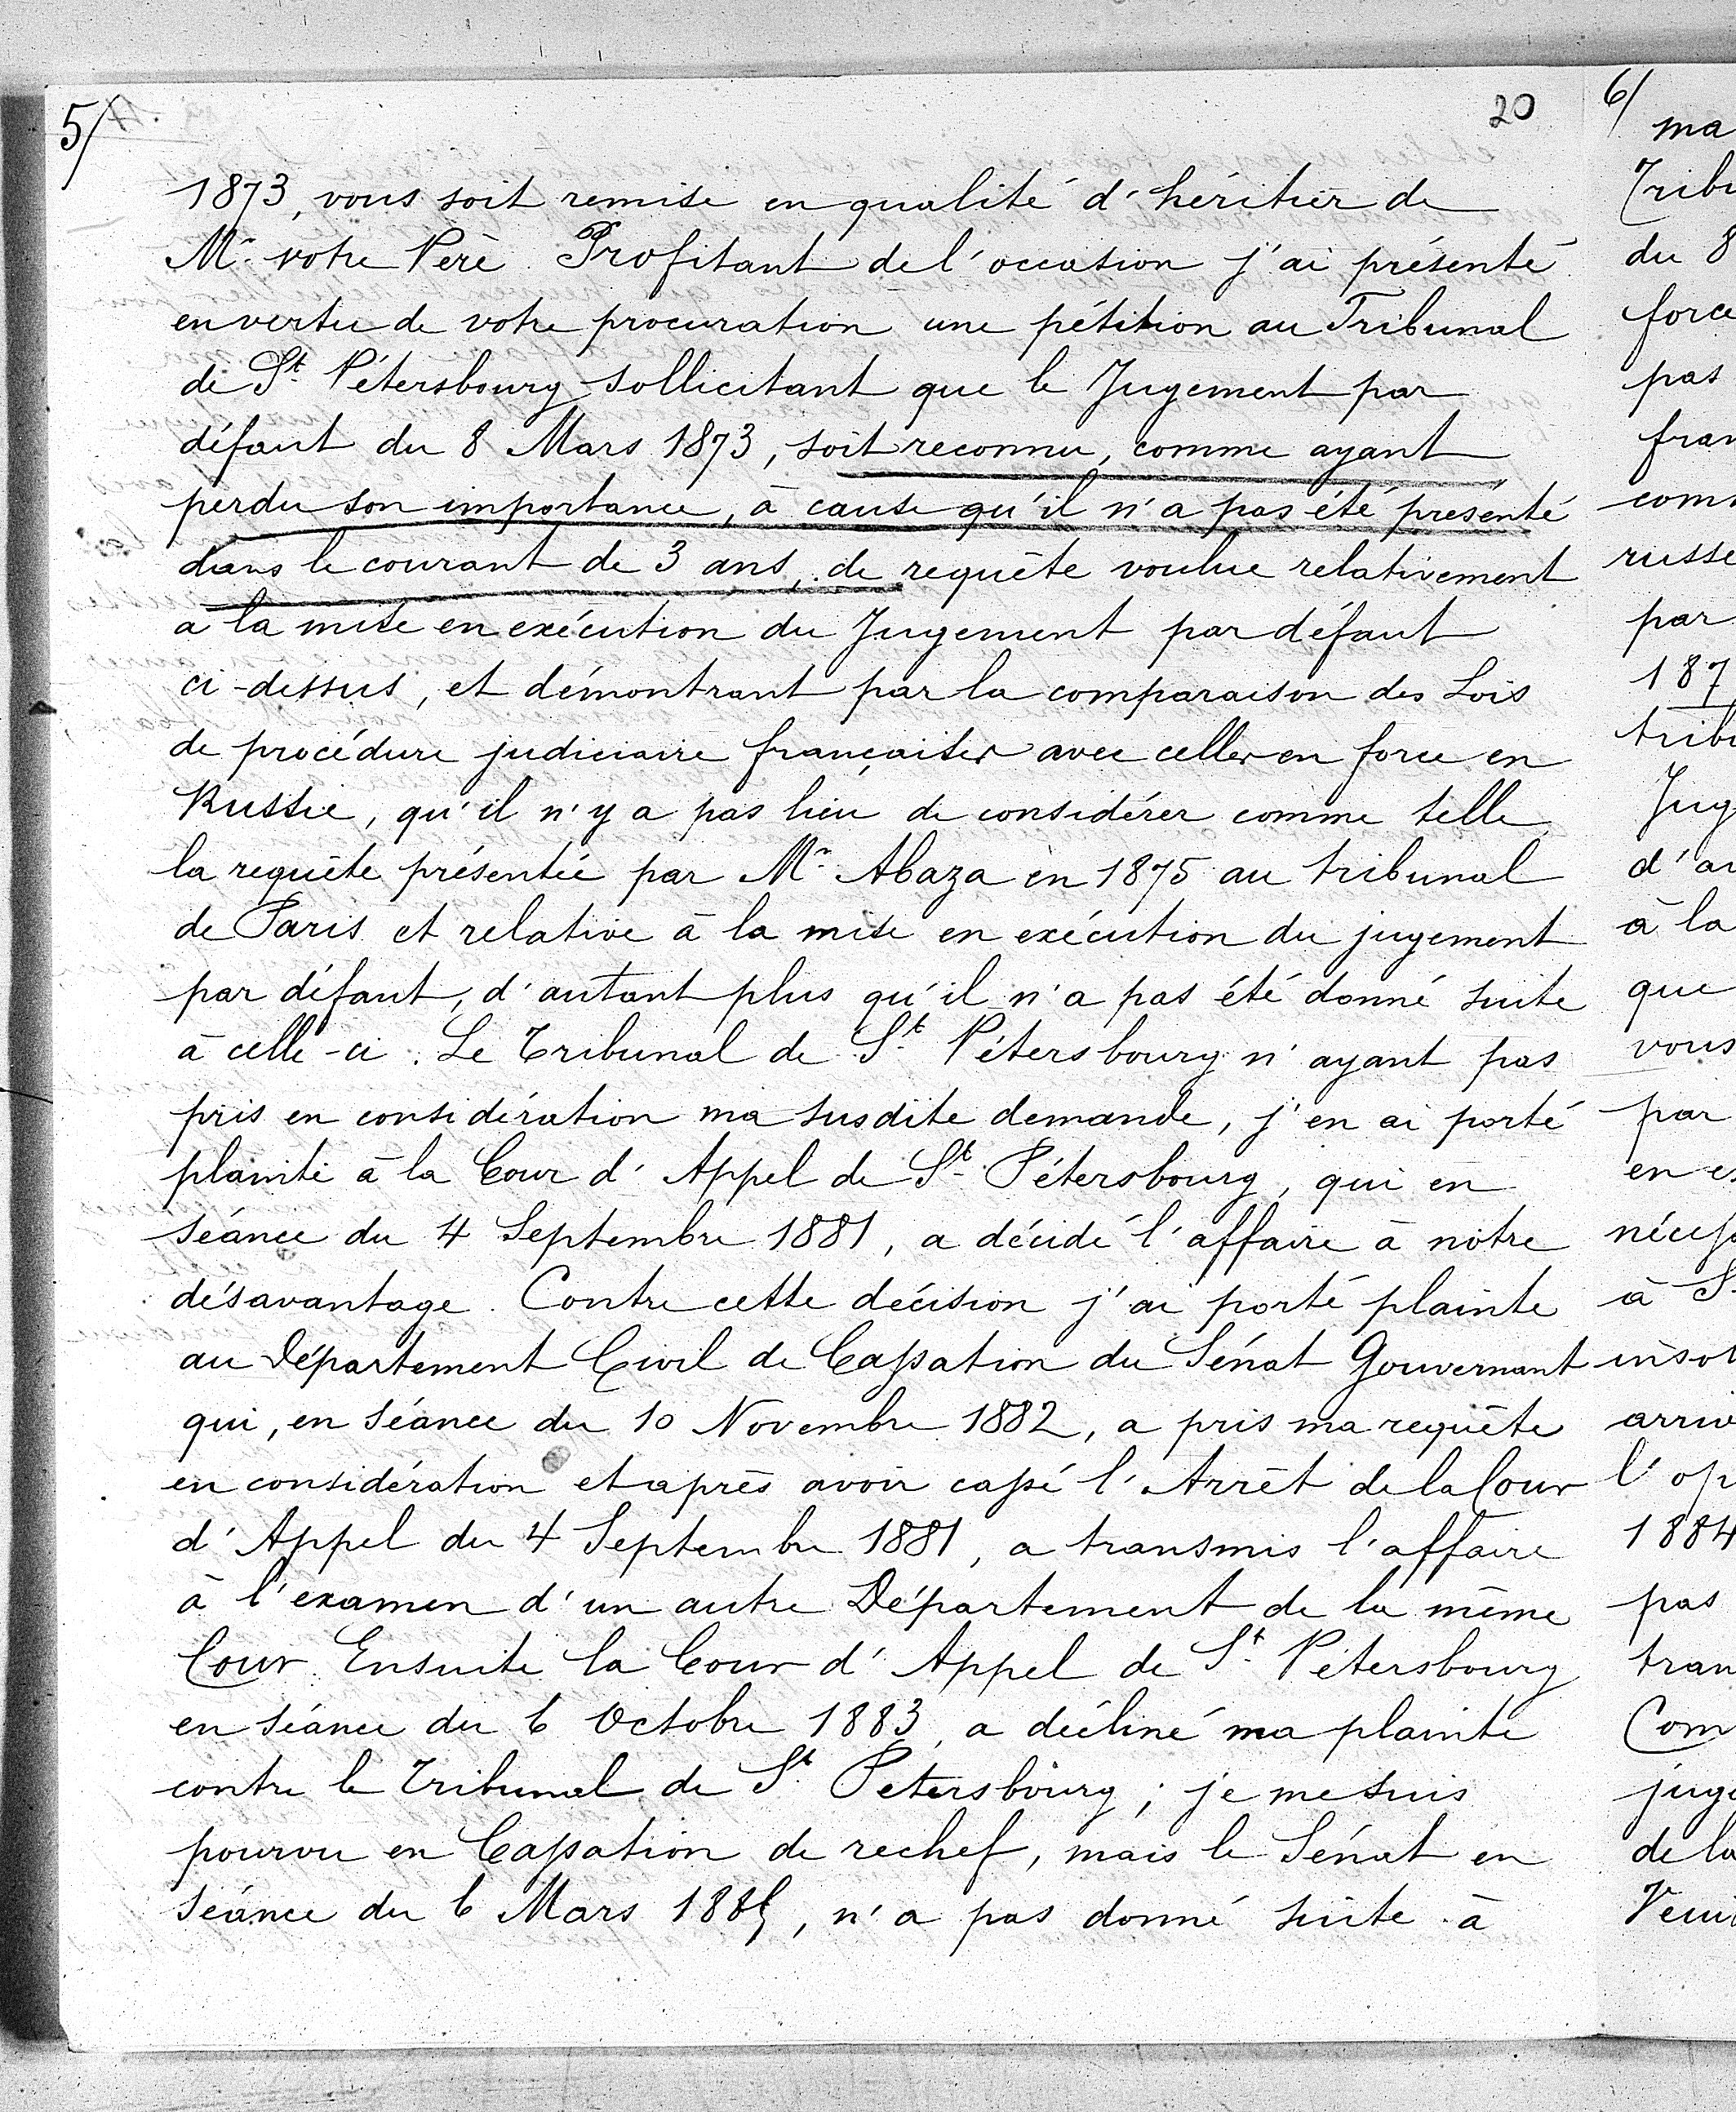 5/
20
1873, vous soit remise en qualité d'héritier de
Mr votre Père. Profitant de l'occasion j'ai présenté
en vertu de votre procuration une pétition au Tribunal
de St Pétersbourg sollicitant que le Jugement par
défaut du 8 Mars 1873, soit reconnu, comme ayant
perdu son importance, à cause qu'il n'a pas été présenté
dans le courant de 3 ans, de requête voulue relativement
a la mise en exécution du Jugement par défaut
ci-dessus, et démontrant par la comparaison des Lois
de procédure judiciaire françaises avec celles en force en
Russie, qu'il n'y a pas lieu de considérer comme telle
la requête présentée par Mr Abaza en 1875 au tribunal
de Paris et relative à la mise en exécution du jugement
par défaut, d'autant plus qu'il n'a pas été donné suite
à celle-ci. Le Tribunal de St Pétersbourg n'ayant pas
pris en considération ma susdite demande, j'en ai porté
plainte à la Cour d'Appel de St Pétersbourg, qui en
séance du 4 Septembre 1881, a décidé l'affaire à nôtre
désavantage. Contre cette décision j'ai porté plainte
au Département Civil de Cassation du Sénat Gouvernant
qui, en séance du 10 Novembre 1882, a pris ma requête
en considération et après avoir cassé l'Arrêt de la Cour
d'Appel du 4 Septembre 1881, a transmis l'affaire
à l'examen d'un autre Département de la même
Cour. Ensuite la Cour d'Appel de St Pétersbourg
en séance du 6 Octobre 1883, a décliné ma plainte
contre le Tribunal de St Petersbourg; je me suis
pourvu en Cassation de rechef, mais le Sénat en
séance du 6 Mars 1885, n'a pas donné suite à
6/
ma
Tribu
du 8
force
pas
fran
com
russe
par
187
tribu
Jug
d'ar
à la
que
vous
par
en ex
nécess
à S
insol
arriv
l'op
1884
pas
tran
Com
juge
de la
Veui